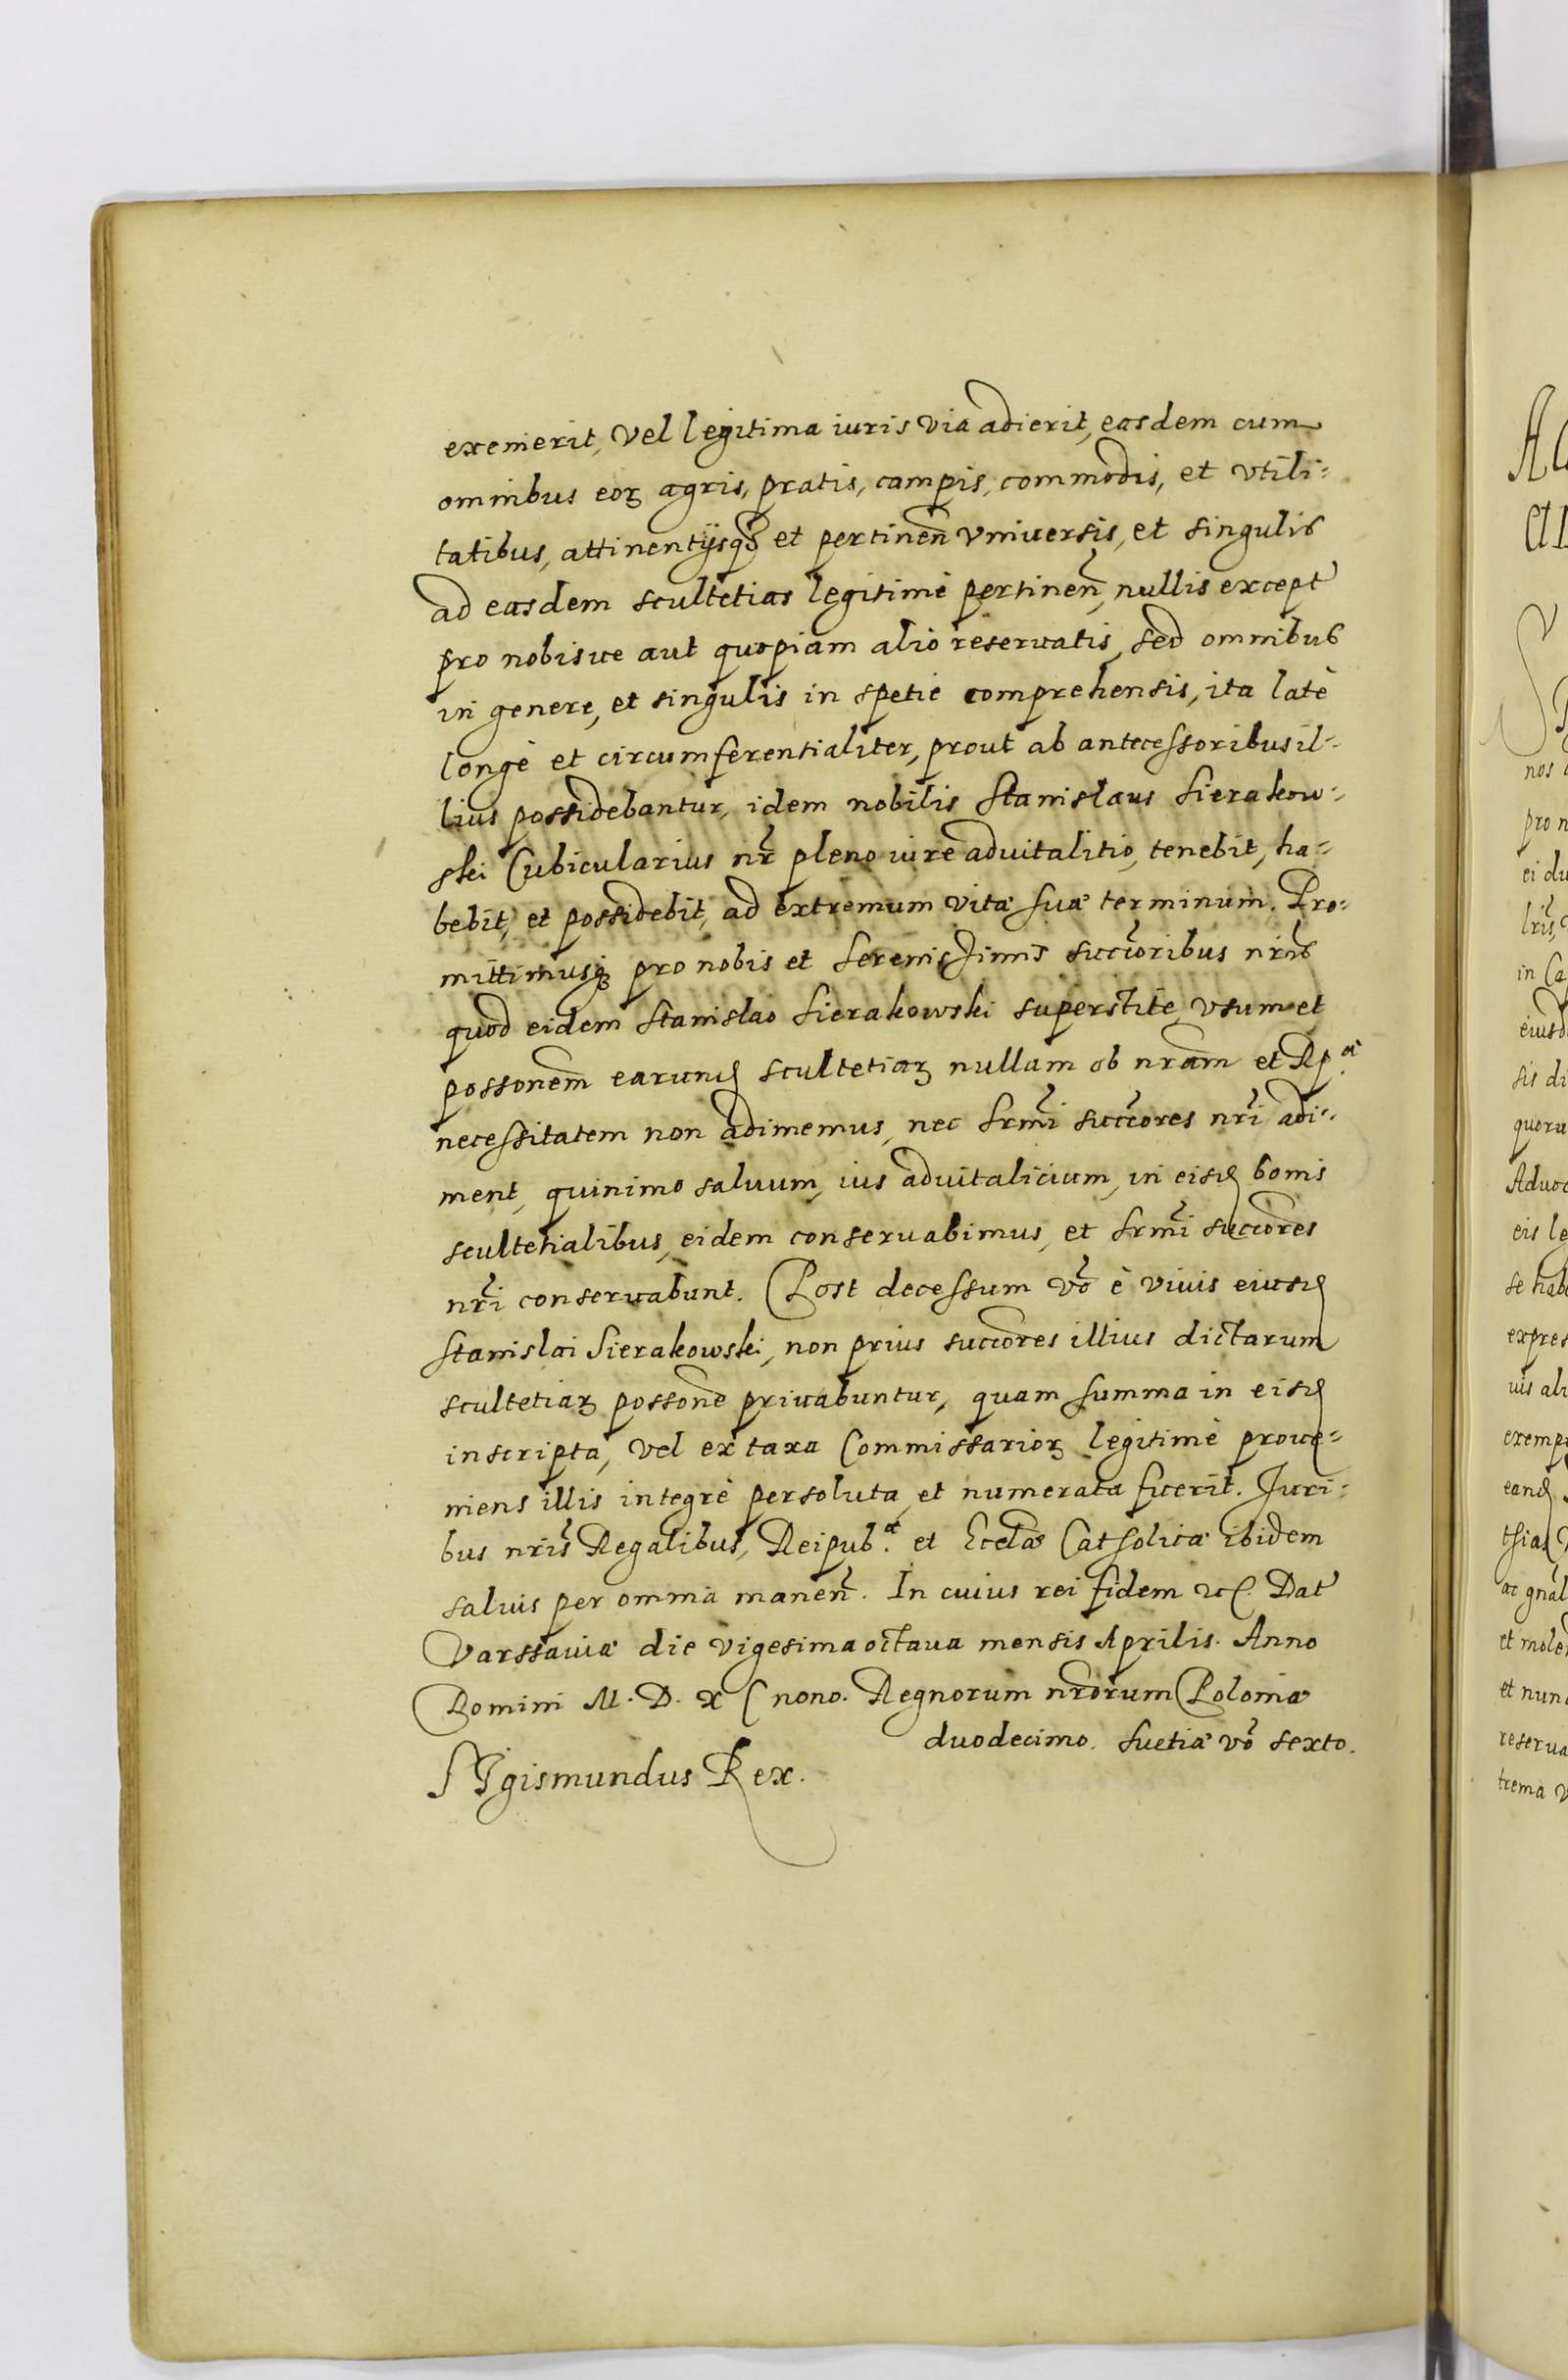 exemerit, vel legitima iuris via adierit, easdem cum
omnibus eorꝫ agris, pratis, campis, commodis, et vtili-
tatibus, attinentijsqꝫ et pertineñ vniuersis, et singulis
ad easdem scultetias legitimè pertineñ, nullis except
pro nobisue aut quopiam alio reseruatis, sed omnibus
in genere, et singulis in spetie comprehensis, ita latè
longè et circumferentialiter, prout ab antecessoribus il-
lius possidebantur, idem nobilis Stanislaus Sierakow-
ski Cubicularius nr̃ pleno iure aduitalitio, tenebit, ha-
bebit, et possidebit, ad extremum vitæ suæ terminum. Pro-
mittimusqꝫ pro nobis et Serenissimis succoribus nris
quod eidem Stanislao Sierakowski superstite, vsum et
possonem earund scultetiarꝫ nullam ob nram et Rpcæ
necessitatem non adimemus, nec Srmi succores nri adi-
ment, quinimo saluum, ius aduitalicium, in eisd bonis
scultetialibus, eidem conseruabimus, et Srmi succores
nri conseruabunt. Post decessum vo è viuis eiusd
Stanislai Sierakowski, non prius succores illius dictarum
scultetiarꝫ possone priuabuntur, quam summa in eisd
inscripta, vel ex taxa Commissariorꝫ legitimè proue-
niens illis integrè persoluta, et numerata fuerit. Iuri-
bus nris Regalibus, Reipub.æ et Ecclæ Catholicæ ibidem
saluis per omnia maneñ. In cuius rei fidem etc. Dat
Varssauiæ die vigesima octaua mensis Aprilis. Anno
Domini M. D. X C nono. Regnorum nrorum Poloniæ
duodecimo. Suetiæ vo sexto.
Sigismundus Rex.